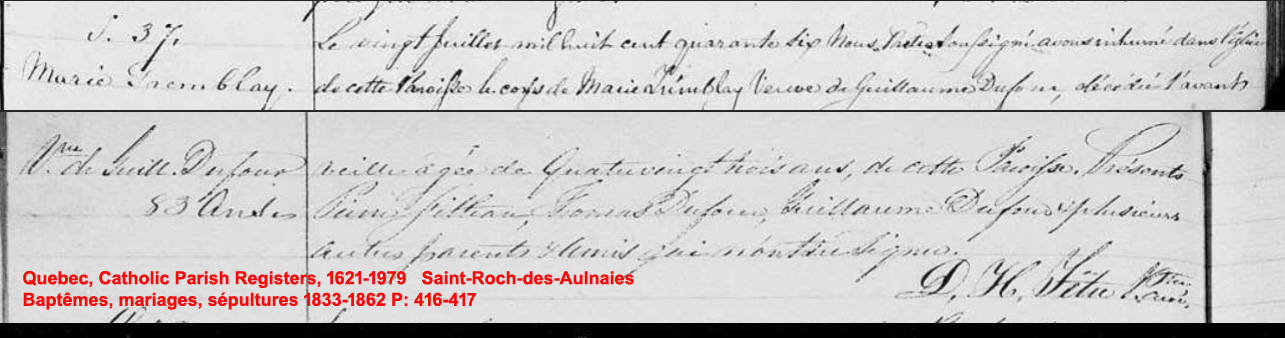 S. 37.
Marie Tremblay.
Le vingt Juillet mil huit cent quarante six Nous Prêtre Soussigné avons inhumé dans l'église
de cette Paroisse le corps de Marie Trimblay Veuve de Guillaume Dufour, décédée l'avant
Vve de Guill. Dufour
83 Ans.
veille agée de Quatre vingt trois ans, de cette Paroisse. Présents
Pierre Dufour, Guillaume Dufour & plusieurs
autres parents & Amis qui n'ont su signer.
D. H. Têtu Ptre
Curé.
Quebec, Catholic Parish Registers, 1621-1979 Saint-Roch-des-Aulnaies
Baptêmes, mariages, sépultures 1833-1862 P: 416-417